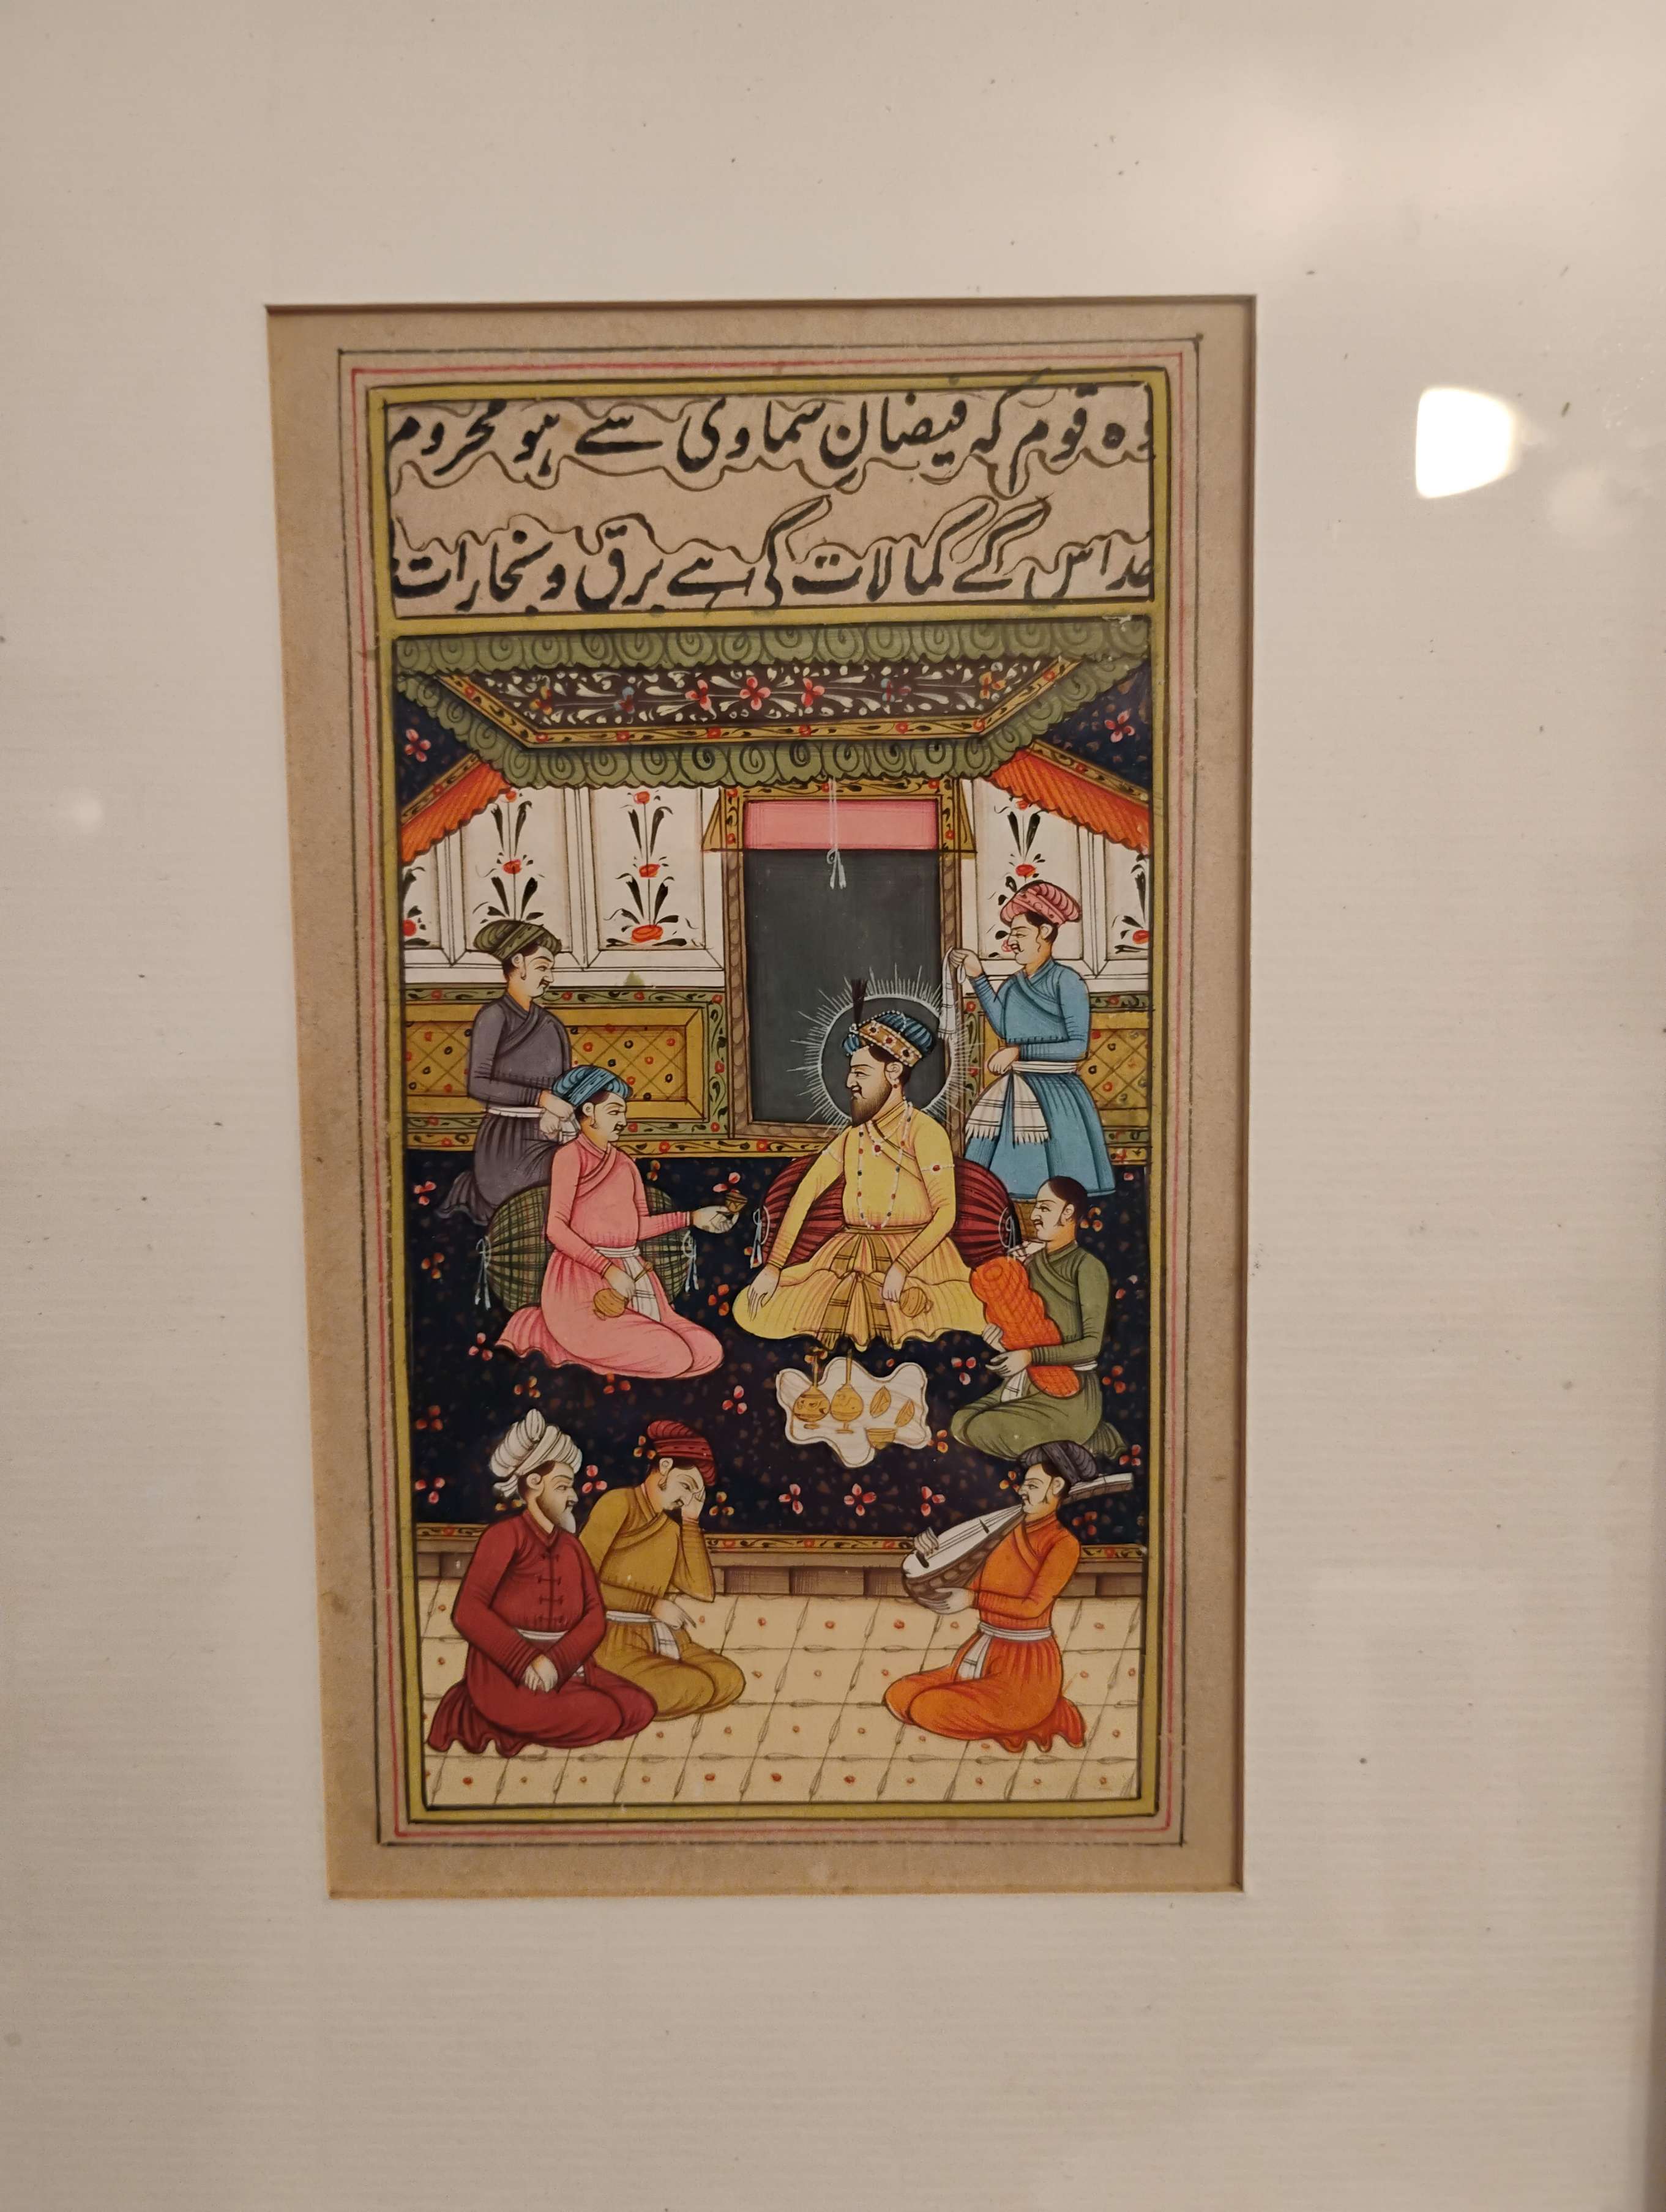 وہ قوم کہ فیضانِ سماوی سے ہو محروم
حد اس کے کمالات کی ہے برق و بخارات